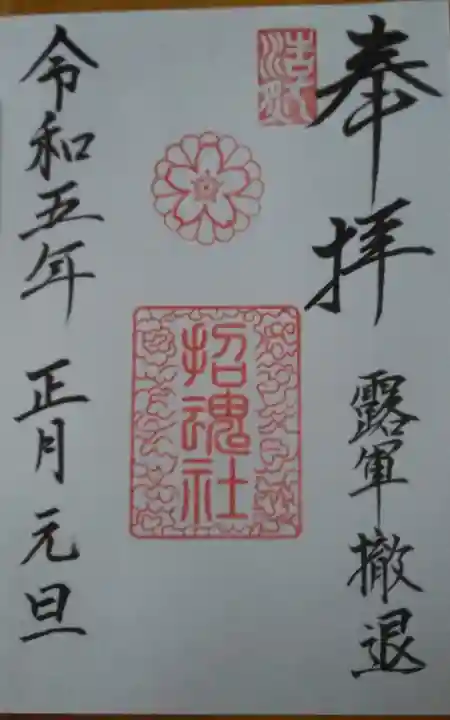 奉拝
露軍撤退
招魂社
令和五年 正月元旦